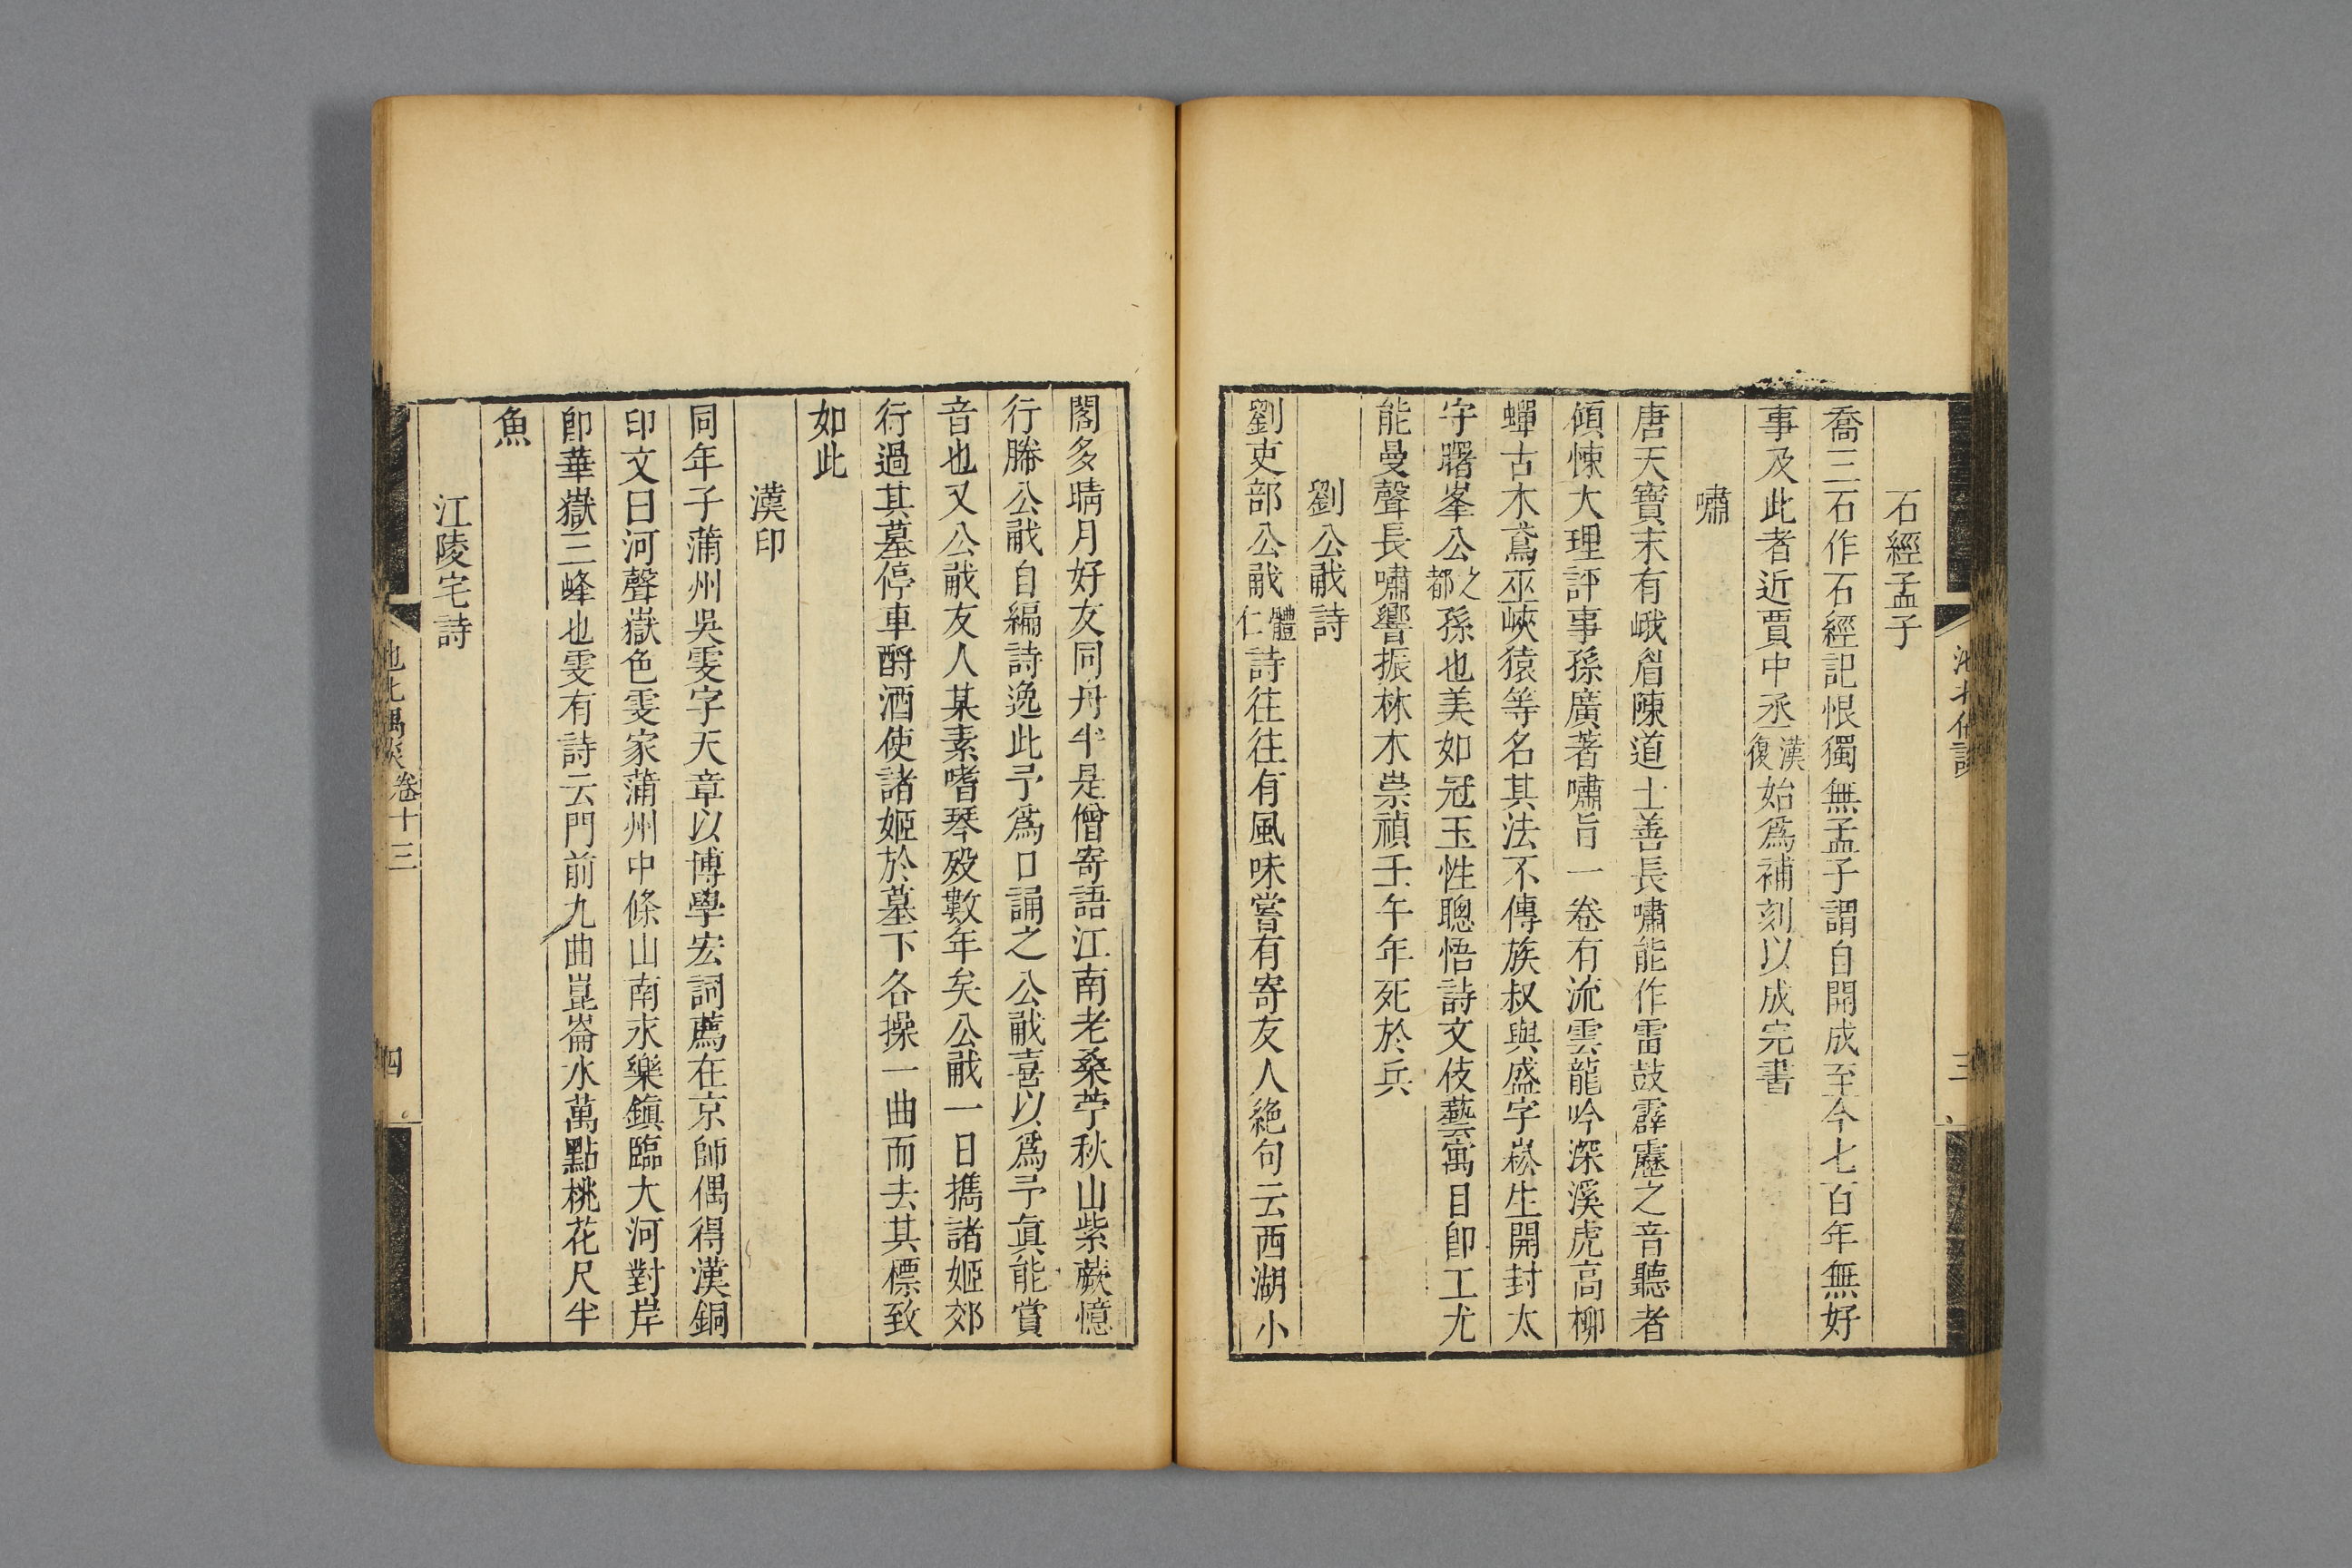 石經孟子
喬三石作石經記恨獨無孟子謂自開成至今七百年無好
事及此者近賈中丞漢復始爲補刻以成完書
嘯
唐天寶末有峨眉陳道士善長嘯能作雷鼓霹靂之音聽者
傾悚大理評事孫廣著嘯旨一卷有流雲龍吟深溪虎高柳
蟬古木鳶巫峽猿等名其法不傳族叔與盛字崧生開封太
守曙峯公之都孫也美如冠玉性聰悟詩文伎藝寓目卽工尤
能曼聲長嘯響振林木崇禎壬午年死於兵
劉公㦷詩
劉吏部公㦷體仁詩往往有風味嘗有寄友人絶句云西湖小
閣多晴月好友同舟半是僧寄語江南老桑苧秋山紫蕨憶
行縢公㦷自編詩逸此予爲口誦之公㦷喜以爲予眞能賞
音也又公㦷友人某素嗜琴殁數年矣公㦷一日携諸姬郊
行過其墓停車酹酒使諸姬於墓下各操一曲而去其標致
如此
漢印
同年子蒲州吳雯字天章以博學宏詞薦在京師偶得漢銅
印文曰河聲嶽色雯家蒲州中條山南永樂鎭臨大河對岸
卽華嶽三峰也雯有詩云門前九曲崑崙水萬點桃花尺半
魚
江陵宅詩
池北偶談
卷十三
四